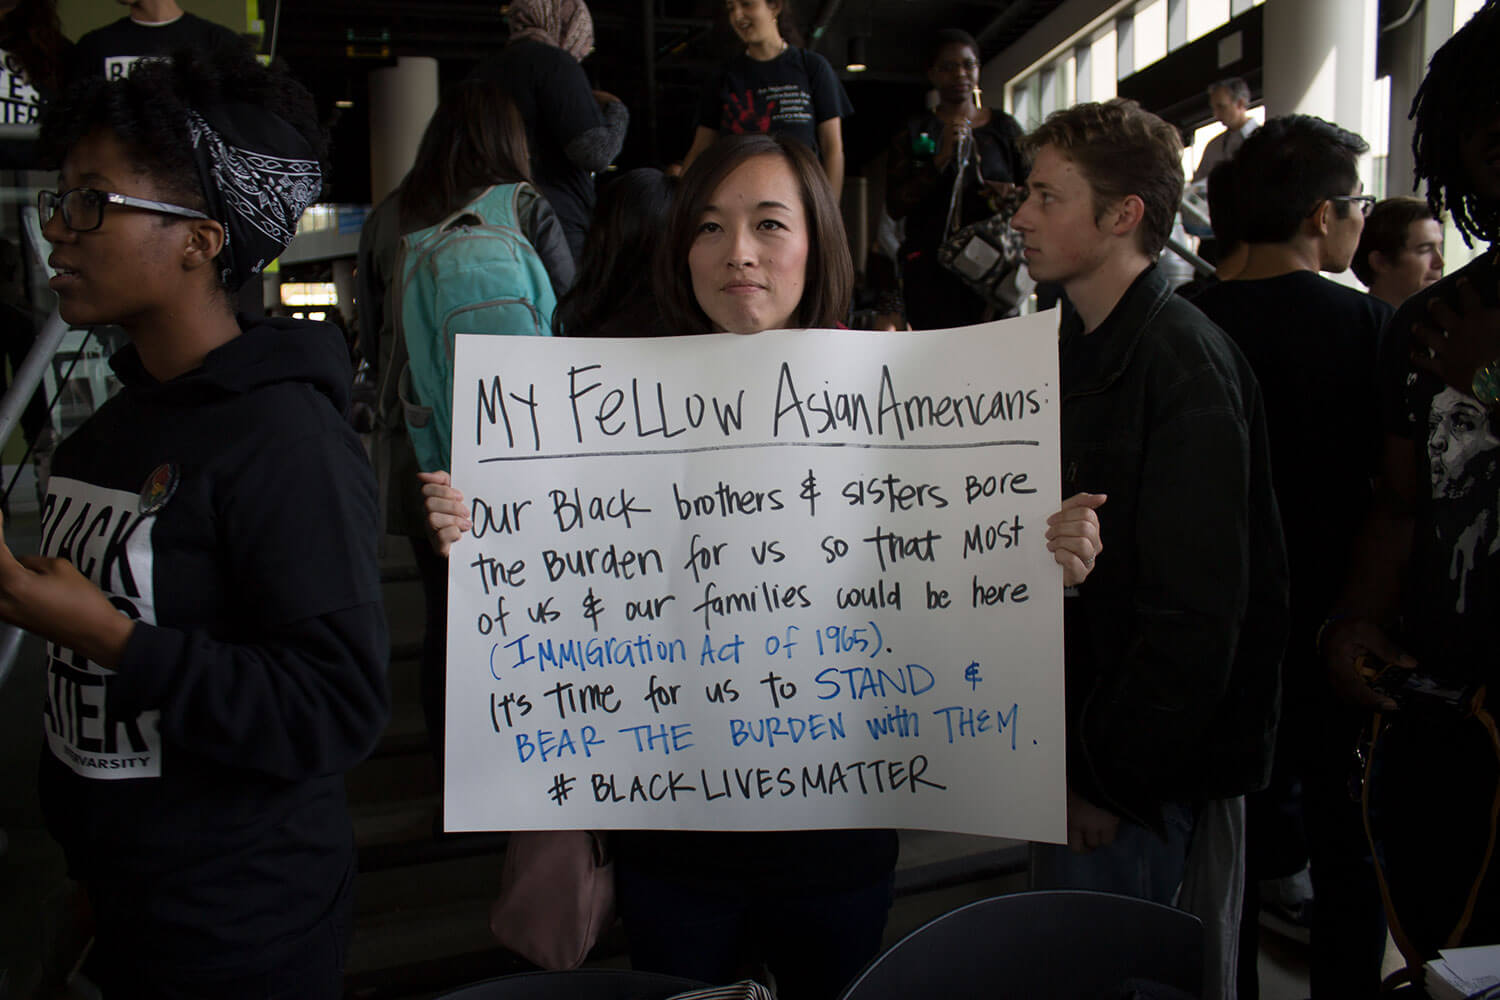 MY FELLOW ASIAN AMERICANS:
OUR BLACK brothers & sisters BORE
the BURDEN for us so that MOST
of us & our families could be here
(IMMIGRATION ACT of 1965).
It's time for us to STAND &
BEAR THE BURDEN with THEM.
# BLACKLIVESMATTER